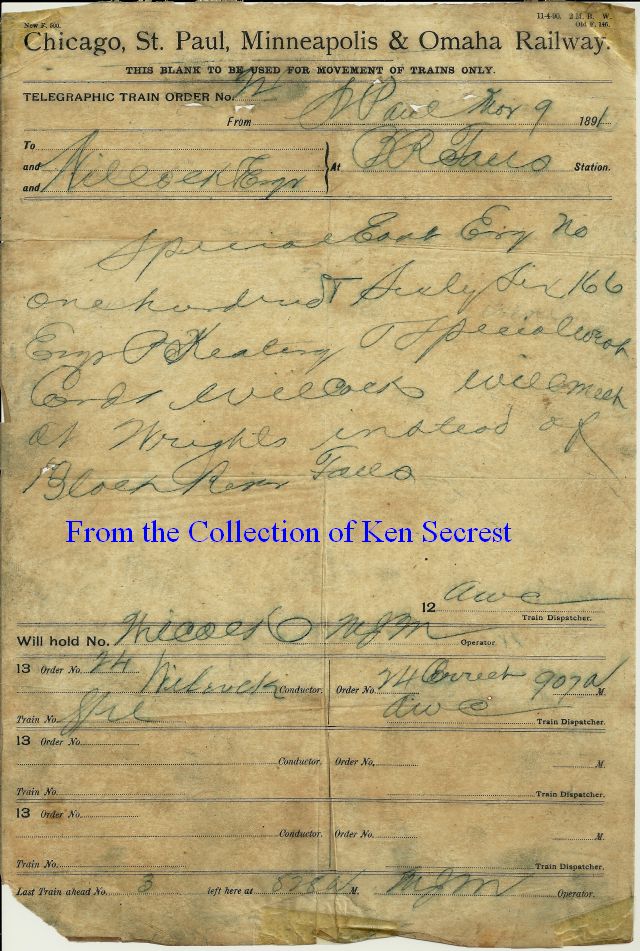 New F. 500.
11-4-90. 2 M. B. W.
Old F. 146.
Chicago, St. Paul, Minneapolis & Omaha Railway.
THIS BLANK TO BE USED FOR MOVEMENT OF TRAINS ONLY.
TELEGRAPHIC TRAIN ORDER No.
From St Paul Nov 9 1891
To
and Willcock Engr At B R Falls Station.
and
Special East Eng No
one hundred & Sixty Six 166
Engr P Keating & Special West
Cond Willcock will meet
at Wrights instead of
Black River Falls
From the Collection of Ken Secrest
12 awc
Train Dispatcher.
Will hold No. Wilcock MJM
Operator.
13 Order No. 24 Wilcock Conductor. Order No. 24 Correct 907 a M.
Train No. awc Train Dispatcher.
13 Order No. Conductor. Order No. M.
Train No. Train Dispatcher.
13 Order No. Conductor. Order No. M.
Train No. Train Dispatcher.
Last Train ahead No. 3 left here at 828 a M. MJM Operator.